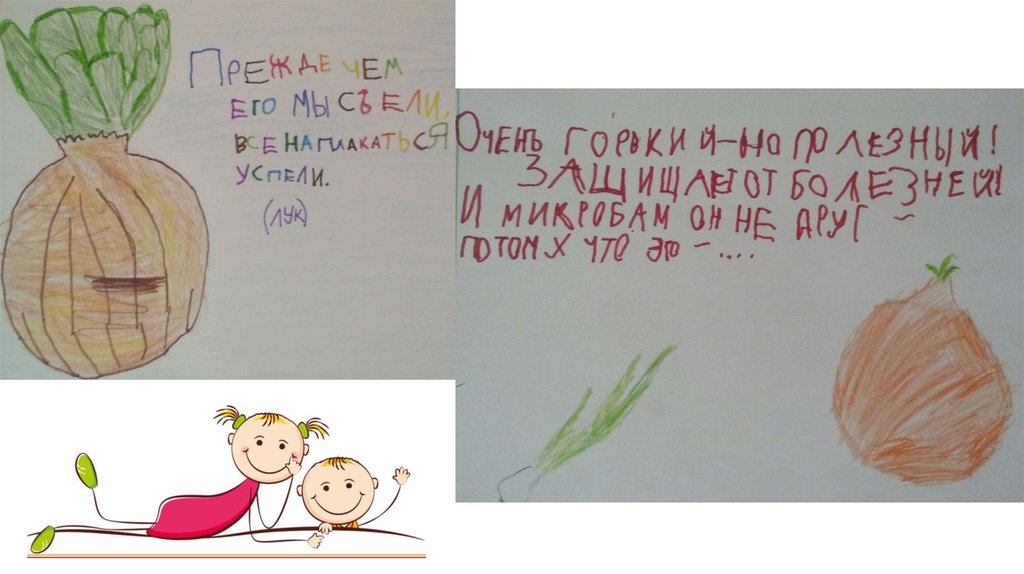 ПРЕЖДЕ ЧЕМ
ЕГО МЫ СЪЕЛИ,
ВСЕ НАПЛАКАТЬСЯ
УСПЕЛИ.
(ЛУК)
ОЧЕНЬ ГОРЬКИЙ-НО ПОЛЕЗНЫЙ!
ЗАЩИЩАЕТ ОТ БОЛЕЗНЕЙ!
И МИКРОБАМ ОН НЕ ДРУГ -
ПОТОМУ ЧТО ЭТО - ....